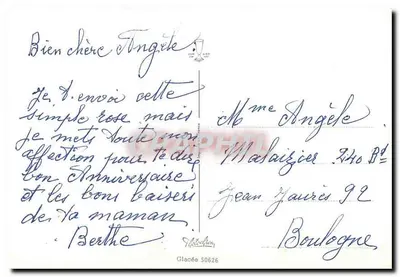 Bien chère Angèle.
Je t. envoi cette
simple rose mais
je mets toute mon
affection pour te dir
bon Anniversaire
et les bons baisers
de ta maman
Berthe
Mme Angèle
Malaizier 240 Bd
Jean Jaurès 92
Boulogne
Glacée 50626